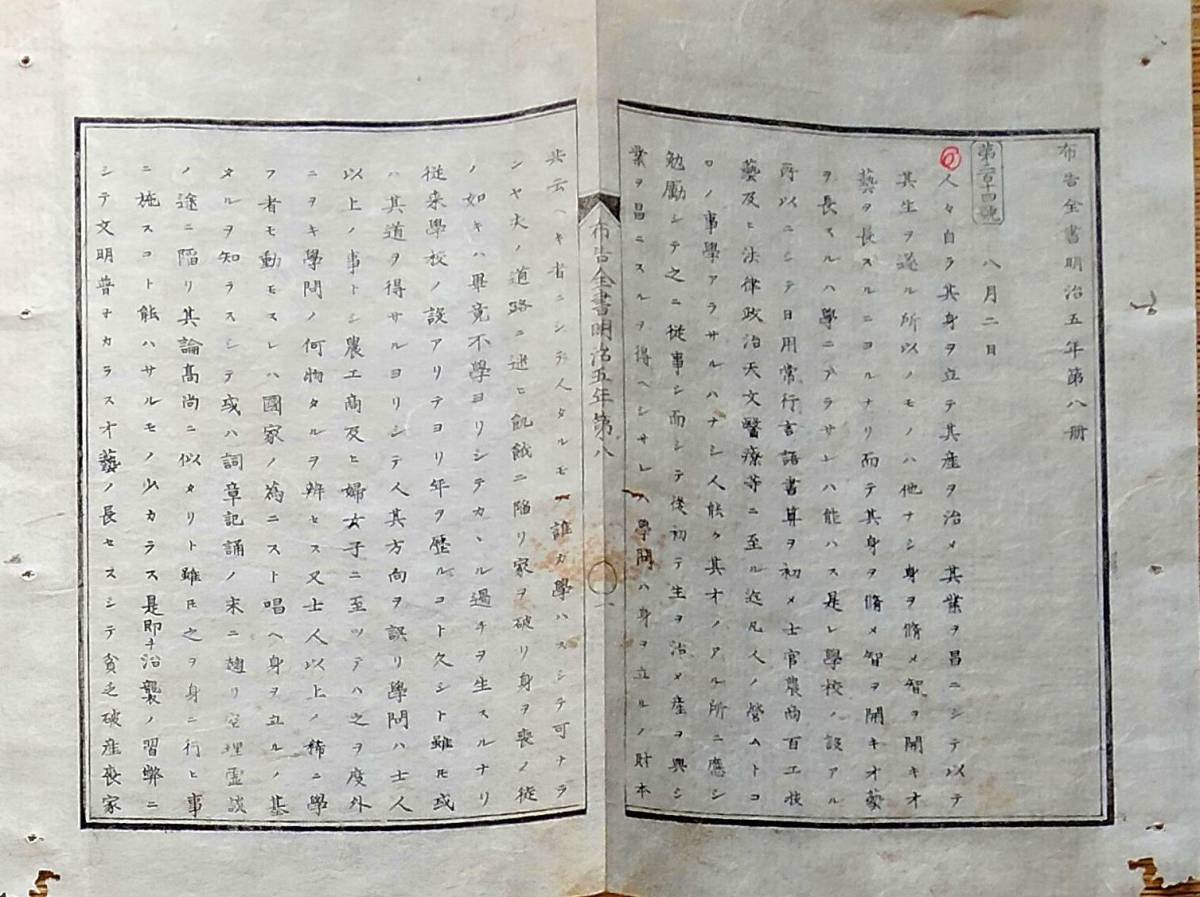 布告全書明治五年第八册
第二百十四號　八月二日
人々自ラ其身ヲ立テ其産ヲ治メ其業ヲ昌ニシテ以テ
其生ヲ遂ル所以ノモノハ他ナシ身ヲ脩メ智ヲ開キ才
藝ヲ長スルニヨルナリ而テ其身ヲ脩メ智ヲ開キ才藝
ヲ長スルハ學ニアラサレハ能ハス是レ學校ノ設アル
所以ニシテ日用常行言語書算ヲ初メ士官農商百工技
藝及ヒ法律政治天文醫療等ニ至ル迄凡人ノ營ムトコ
ロノ事學アラサルハナシ人能ク其才ノアル所ニ應シ
勉勵シテ之ニ從事シ而シテ後初テ生ヲ治メ産ヲ興シ
業ヲ昌ニスルヲ得ヘシサレハ學問ハ身ヲ立ルノ財本
布告全書明治五年第八
一
共云ヘキ者ニシテ人タルモノ誰カ學ハスシテ可ナラ
ンヤ夫ノ道路ニ迷ヒ飢餓ニ陥リ家ヲ破リ身ヲ喪ノ徒
ノ如キハ畢竟不學ヨリシテカヽル過チヲ生スルナリ
從来學校ノ設アリテヨリ年ヲ歴ルコト久シト雖モ或
ハ其道ヲ得サルヨリシテ人其方向ヲ誤リ學問ハ士人
以上ノ事トシ農工商及ヒ婦女子ニ至ツテハ之ヲ度外
ニヲキ學問ノ何物タルヲ辨セス又士人以上ノ稀ニ學
フ者モ動モスレハ國家ノ為ニスト唱ヘ身ヲ立ルノ基
タルヲ知ラスシテ或ハ詞章記誦ノ末ニ趨リ空理虚談
ノ途ニ陥リ其論高尚ニ似タリト雖モ之ヲ身ニ行ヒ事
ニ施スコト能ハサルモノ少カラス是即チ沿襲ノ習弊ニ
シテ文明普子カラス才藝ノ長セスシテ貧乏破産喪家